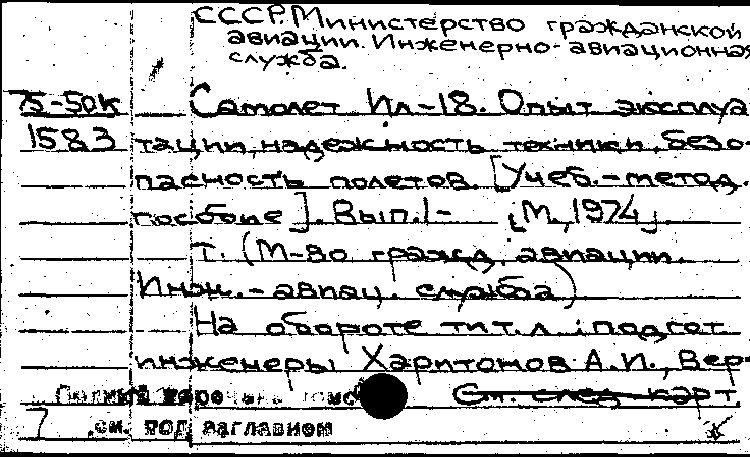 СССР. Министерство гражданской
авиации. Инженерно-авиационная
служба.
75-50к Самолет Ил-18. Опыт эксплуа
1583 тации, надежность техники, безо-
пасность полетов. [Учеб.-метод.
пособие]. Вып.1- [М., 1974].
т. (М-во гражд. авиации.
Инж.-авиац. служба)
На обороте тит. л.: подгот.
инженеры Харитонов А.И., Вер-
Полный перечень См. след. карт.
7 см. под заглавием